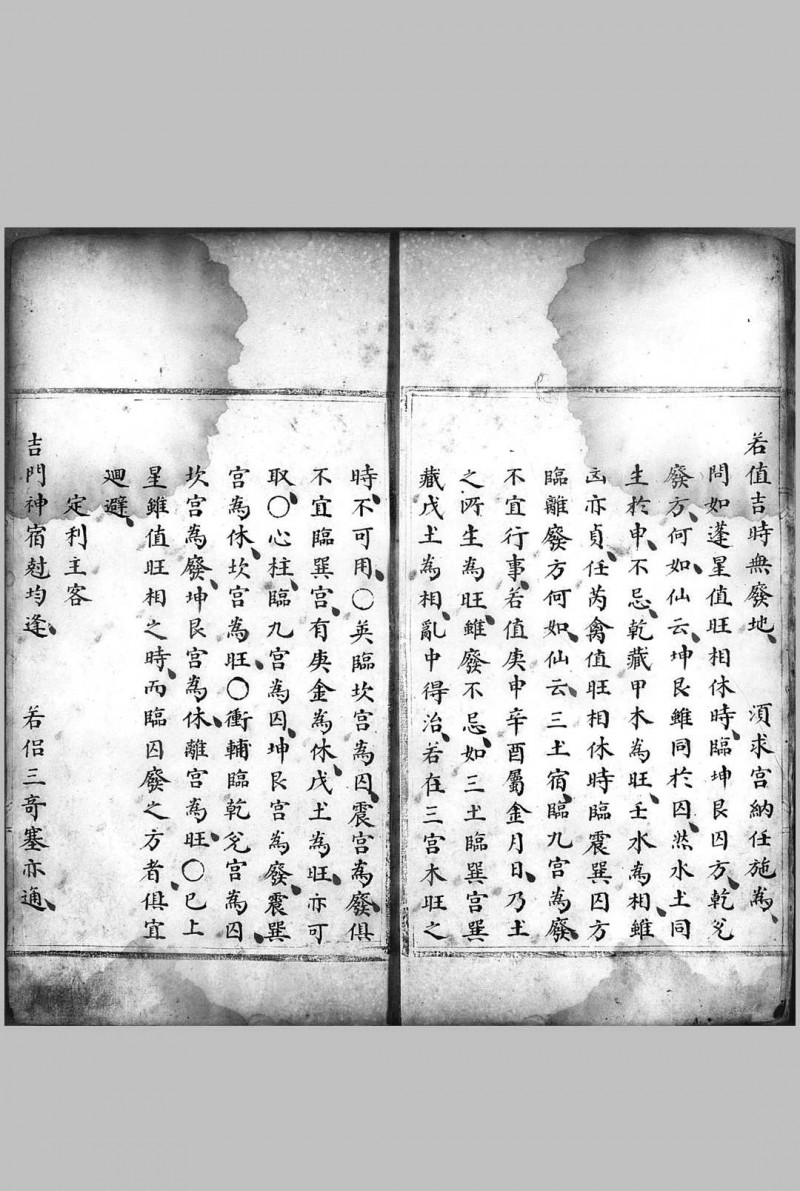 若值吉時無廢地、　湏求宮納任施為、
問如蓬星值旺相休時、臨坤艮囚方、乾兊
廢方、何如、仙云、坤艮雖同於囚、然水土同
生於申、不忌、乾藏甲木為旺、壬水為相、雖
凶亦貞、任芮禽值旺相休時臨震巽囚方
臨離廢方何如、仙云、三土宿、臨九宮為廢、
不宜行事、若值庚申辛酉屬金月日、乃土
之所生為旺、雖廢不忌、如三土臨巽宮巽
藏戊土為相、亂中得治、若在三宮木旺之
時、不可用、〇英臨坎宮為囚、震宮為廢、俱
不宜臨巽宮、有庚金為休、戊土為旺、亦可
取、〇心柱、臨九宮為囚、坤艮宮為廢、震巽
宮為休、坎宮為旺、〇衝輔臨乾兊宮為囚、
坎宮為廢、坤艮宮為休、離宮為旺、〇已上
星雖值旺相之時、而臨囚廢之方者、俱宜
廻避、
定利主客
吉門神宿尅均逢、　若侣三竒塞亦通、